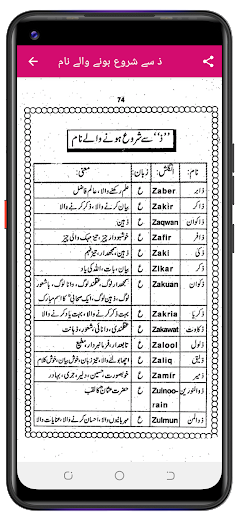 ذ سے شروع ہونے والے نام
74
”ذ“ سے شروع ہونے والے نام
نام: انگلش: زبان: معنی:
ذابر Zaber ع علم رکھنے والا، عالم فاضل
ذاکر Zakir ع بیان کرنے والا، ذکر کرنے والا
ذاکوان Zaqwan ع ذہین
ذافر Zafir ع خوشبودار چیز، تیز مہک والی چیز
ذکی Zaki ع ذہین، سمجھدار، تیز فہم
ذکر Zikar ع بیان، بات، اللہ کی یاد
ذکوان Zakuan ع سمجھدار لوگ، عقلمند لوگ، دانا لوگ، باشعور
لوگ، ذہین لوگ، ایک صحابی کا اسم مبارک
ذکریا Zakria ع بہت ذکر کرنے والا، بہت یاد کرنے والا
ذکاوت Zakawat ع عقلمندی، دانائی، شعور، ذہانت
ذلول Zalool ع تابعدار، فرمانبردار، مطیع
ذلیق Zaliq ع اچھا بولنے والا، تیز زبان، خوش بیان، خوش کلام
ذمیر Zamir ع خوبصورت، حسین، دلیر، جری، بہادر
ذوالنورین Zulnoo- ع حضرت عثمان کا لقب
rain
ذوالمن Zulmun ع مہربانیوں والا، احسان کرنے والا، عنایات والا